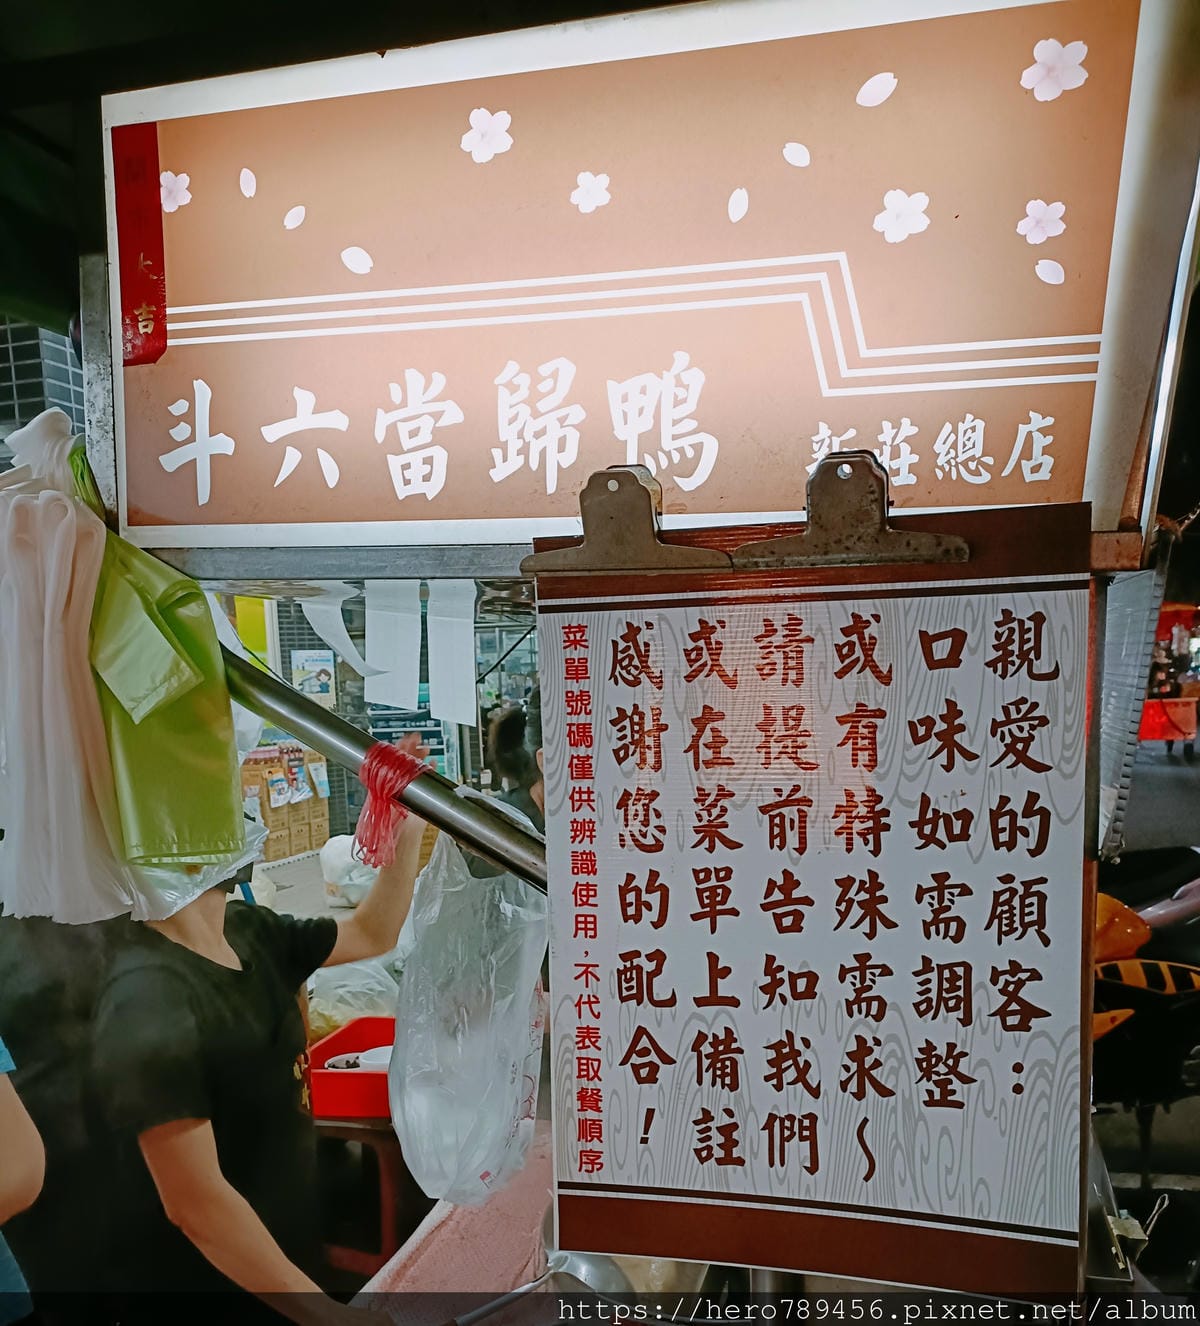 大吉
斗六當歸鴨
新莊總店
親愛的顧客：
口味如需調整
或有特殊需求～
請提前告知我們
或在菜單上備註
感謝您的配合！
菜單號碼僅供辨識使用，不代表取餐順序
https://hero789456.pixnet.net/album